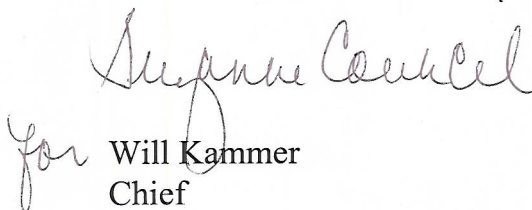 Suzanne Councel
for Will Kammer
Chief